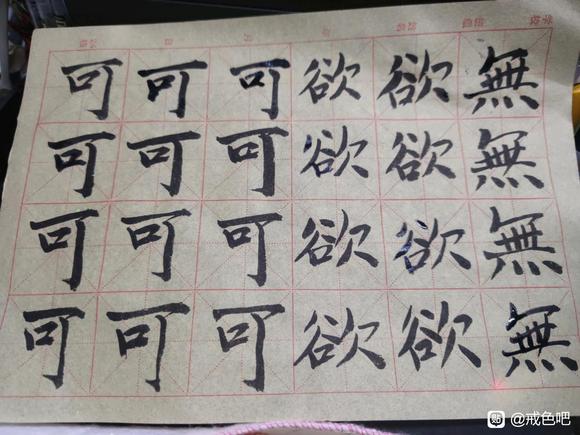 無無無無
欲欲欲欲
欲欲欲欲
可可可可
可可可可
可可可可
贴 @戒色吧